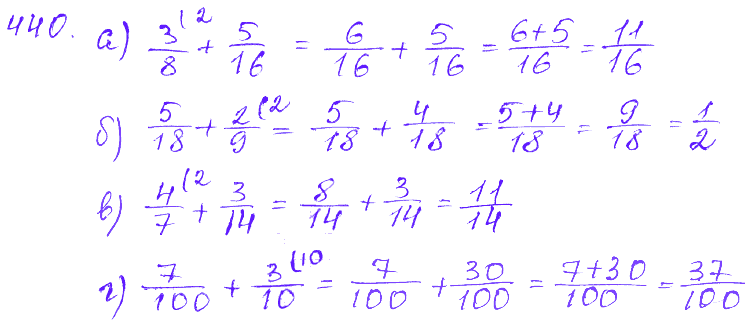 440. а) 3/8 (2 + 5/16 = 6/16 + 5/16 = 6+5/16 = 11/16
б) 5/18 + 2/9 (2 = 5/18 + 4/18 = 5+4/18 = 9/18 = 1/2
в) 4/7 (2 + 3/14 = 8/14 + 3/14 = 11/14
г) 7/100 + 3/10 (10 = 7/100 + 30/100 = 7+30/100 = 37/100